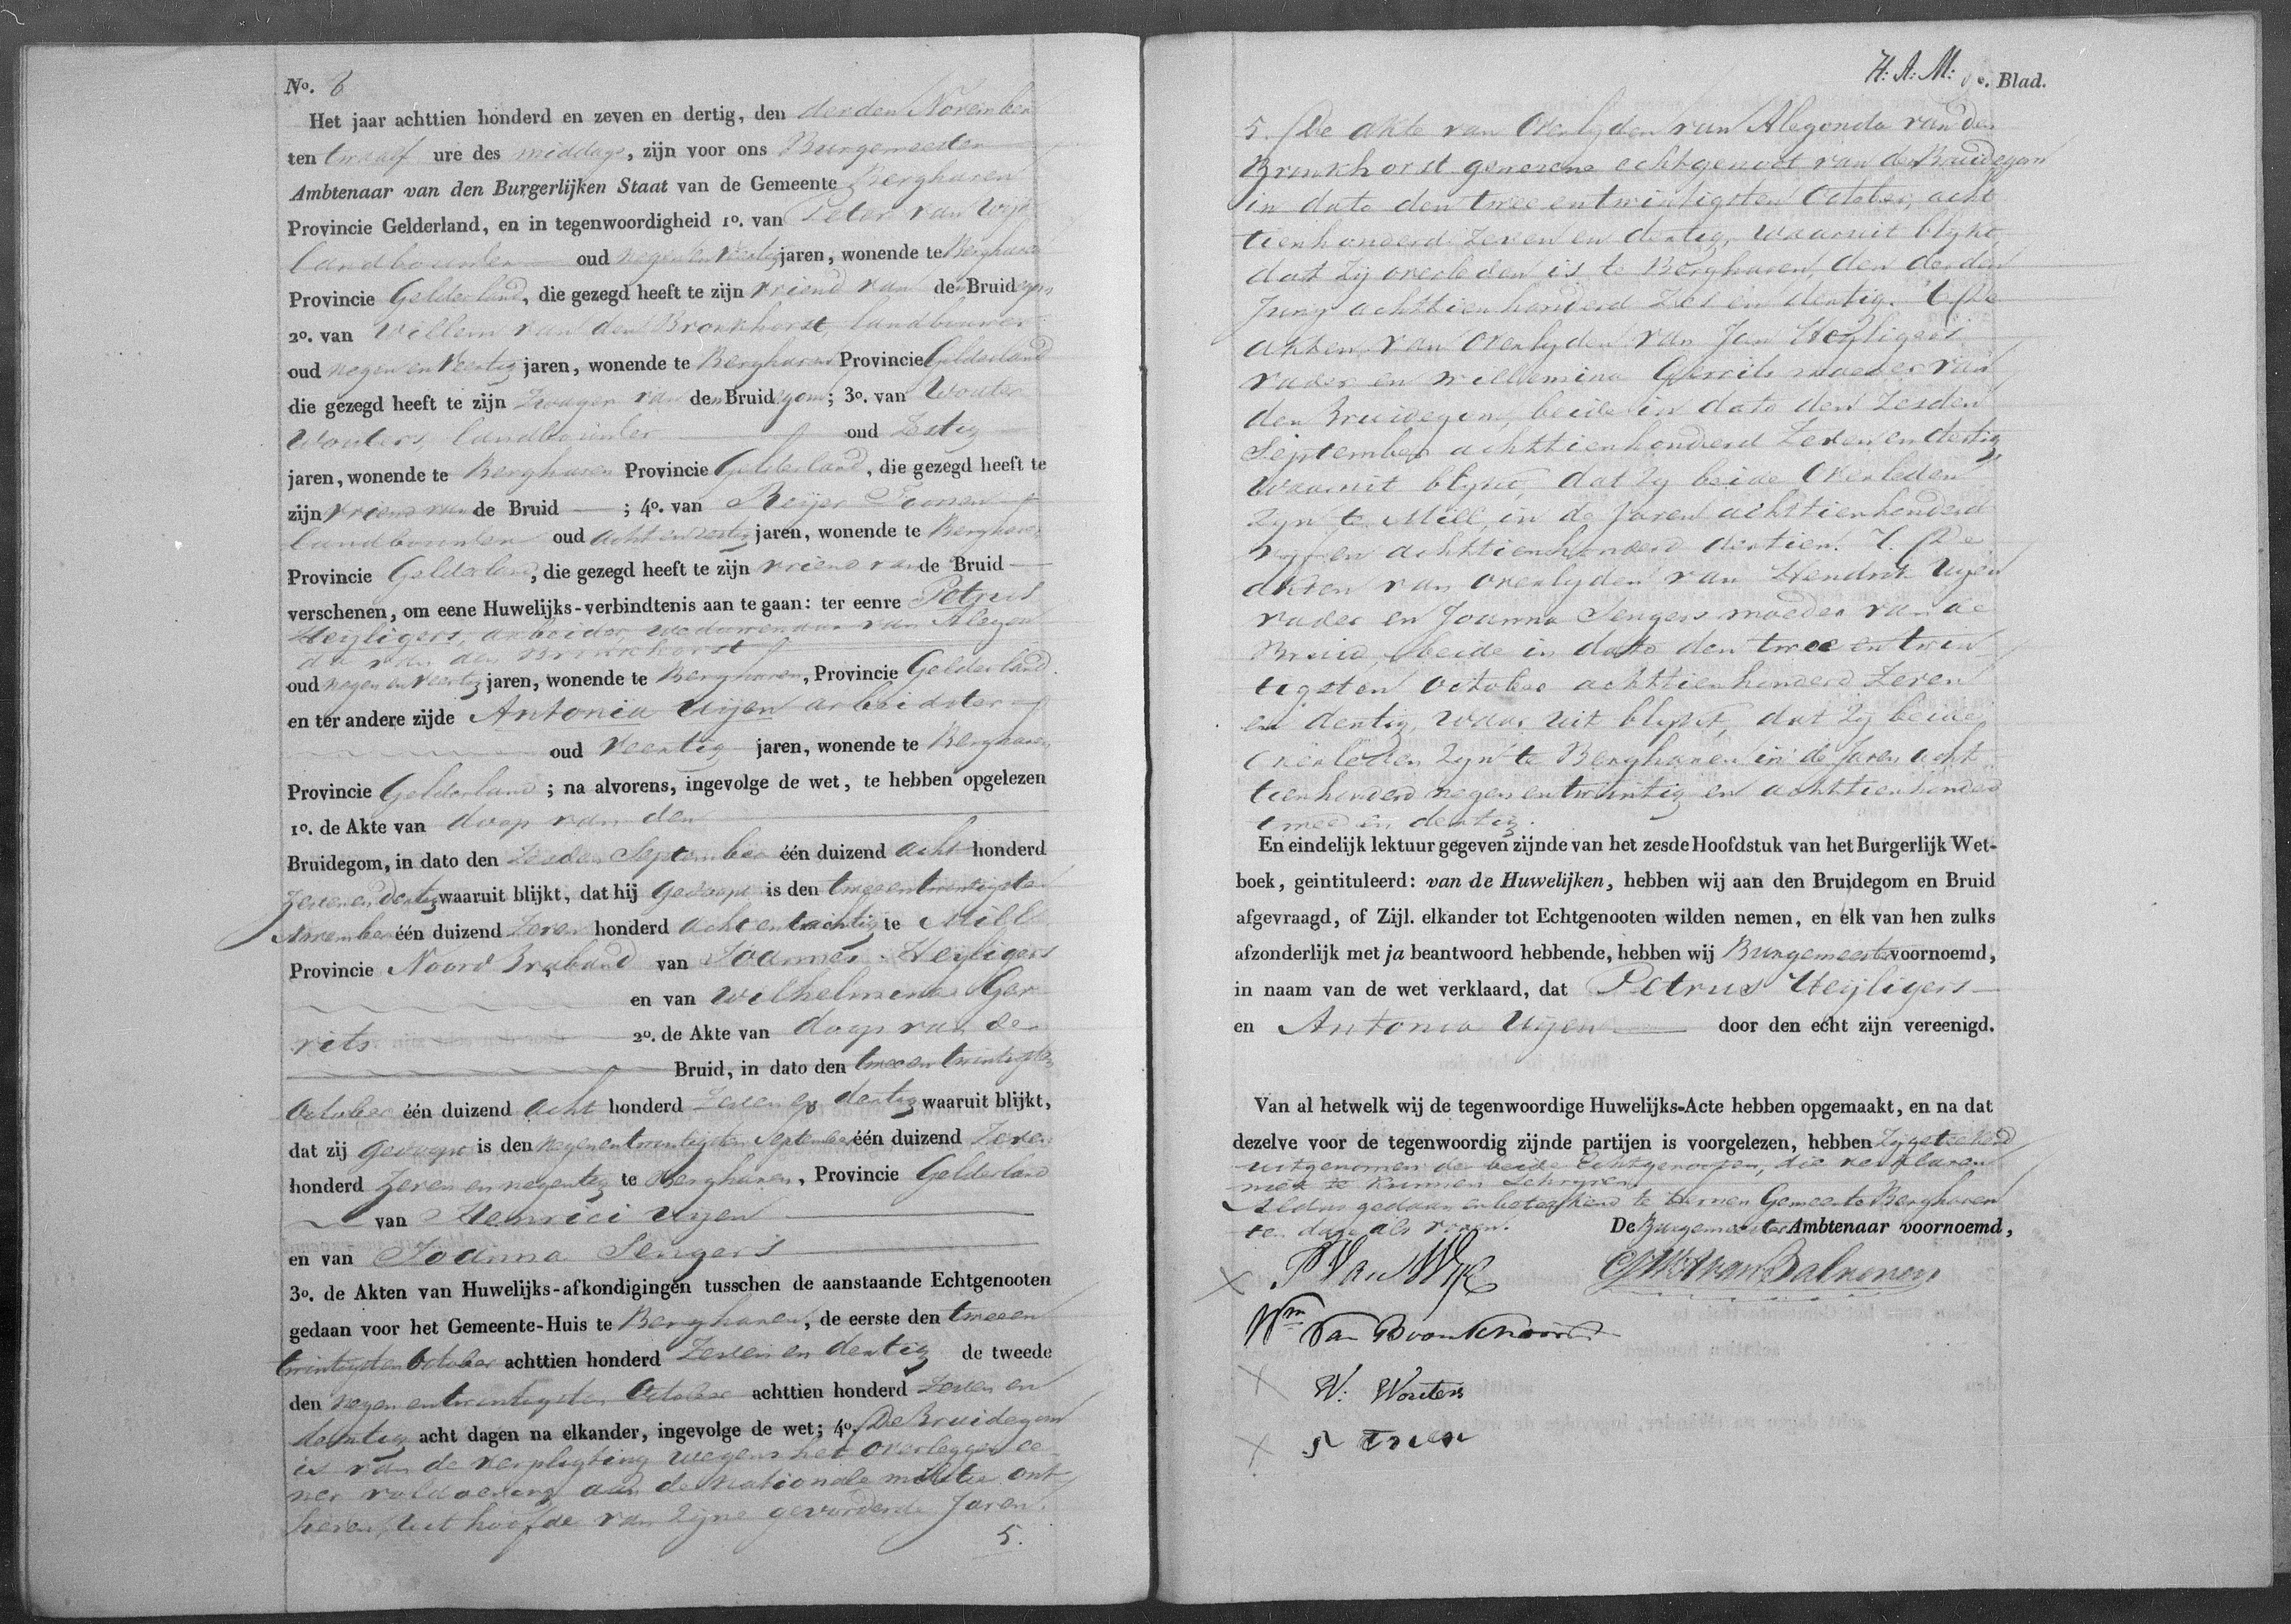 No. 8
Het jaar achttien honderd en zeven en dertig, den derden November
ten twaalf ure des middags, zijn voor ons Burgemeester
Ambtenaar van den Burgerlijken Staat van de Gemeente Bergharen
Provincie Gelderland, en in tegenwoordigheid 1o. van Peter van Wyk
landbouwer oud negen en veertig jaren, wonende te Bergharen
Provincie Gelderland, die gezegd heeft te zijn vriend van den Bruidegom
2o. van Willem van den Bronkhorst, landbouwer
oud negen en veertig jaren, wonende te Bergharen Provincie Gelderland
die gezegd heeft te zijn Zwager van den Bruidegom; 3o. van Wouter
Wouters, landbouwer oud Zestig
jaren, wonende te Bergharen Provincie Gelderland, die gezegd heeft te
zijn vriend van de Bruid ; 4o. van Reijer Toonen
landbouwer oud acht en zestig jaren, wonende te Bergharen
Provincie Gelderland, die gezegd heeft te zijn vriend van de Bruid
verschenen, om eene Huwelijks-verbindtenis aan te gaan: ter eenre Petrus
Heijligers, arbeider, weduwenaar van Alegon
da van den Bronkhorst
oud negen en veertig jaren, wonende te Bergharen, Provincie Gelderland
en ter andere zijde Antonia Uijen arbeidster
oud veertig jaren, wonende te Bergharen
Provincie Gelderland; na alvorens, ingevolge de wet, te hebben opgelezen
1o. de Akte van doop van den
Bruidegom, in dato den Zesden September één duizend acht honderd
Zeven en dertig waaruit blijkt, dat hij gedoopt is den tweeentwintigsten
November één duizend Zeven honderd acht en tachtig te Mill
Provincie Noord Braband van Joannes Heijligers
en van Wilhelmina Ger
rits 2o. de Akte van doop van de
Bruid, in dato den tweeen twintigsten
October één duizend acht honderd Zeven en dertig waaruit blijkt,
dat zij gedoopt is den negenentwintigsten September één duizend Zeven
honderd Zeven en negentig te Bergharen, Provincie Gelderland
van Henrici Uijen
en van Joanna Sengers
3o. de Akten van Huwelijks-afkondigingen tusschen de aanstaande Echtgenooten
gedaan voor het Gemeente-Huis te Bergharen, de eerste den tweeen
twintigsten October achttien honderd Zeven en dertig de tweede
den negen entwintigsten October achttien honderd Zeven en
dertig acht dagen na elkander, ingevolge de wet; 4o. De Bruidegom
is van de verpligting wegens het overleggen ee
ner voldoening aan de Nationale militie ont
heven, uit hoofde van Zijne gevorderde Jaren.
5.
H. A. M: e. Blad.
5. De akte van Overlyden van Alegonda van den
Bronkhorst gewesene echtgenoot van den Bruidegom
in dato den twee entwintigsten October, acht
tienhonderd Zeven en dertig, waaruit blykt,
dat Zij overleden is te Bergharen, den derden
Juny achttienhonderd Zes en dertig. 6. De
akten van Overlyden van Jan Heijligers
vader en Willemina Gerrits moeder van
den Bruidegom, beide in dato den Zesden
September achttienhonderd Zeven en dertig
waaruit blykt, dat Zy beide Overleden
Zyn te Mill, in de Jaren achttienhonderd
en achttienhonderd dertien. 7. De
akten van overlyden van Hendrik Uijen
vader en Joanna Sengers moeder van de
Bruid, beide in dato den twee en twin
tigsten October achttienhonderd Zeven
en dertig, waar uit blykt, dat Zy beide
Overleden Zyn te Bergharen in de Jaren acht
tienhonderd negen entwintig en achttienhonderd
twee en dertig.
En eindelijk lektuur gegeven zijnde van het zesde Hoofdstuk van het Burgerlijk Wet-
boek, geintituleerd: van de Huwelijken, hebben wij aan den Bruidegom en Bruid
afgevraagd, of Zijl. elkander tot Echtgenooten wilden nemen, en elk van hen zulks
afzonderlijk met ja beantwoord hebbende, hebben wij Burgemeester voornoemd,
in naam van de wet verklaard, dat Petrus Heijligers
en Antonia Uijen door den echt zijn vereenigd.
Van al hetwelk wij de tegenwoordige Huwelijks-Acte hebben opgemaakt, en na dat
dezelve voor de tegenwoordig zijnde partijen is voorgelezen, hebben Zij geteekend
uitgenomen de beide Echtgenooten, die verklaren
niet te kunnen Schryven
Aldus gedaan en geteekend te Gemeente Bergharen
ten dage als voren. De Burgemeester Ambtenaar voornoemd,
P Van Wijk van Balveren
Wm Van Bronkhorst
W. Wouters